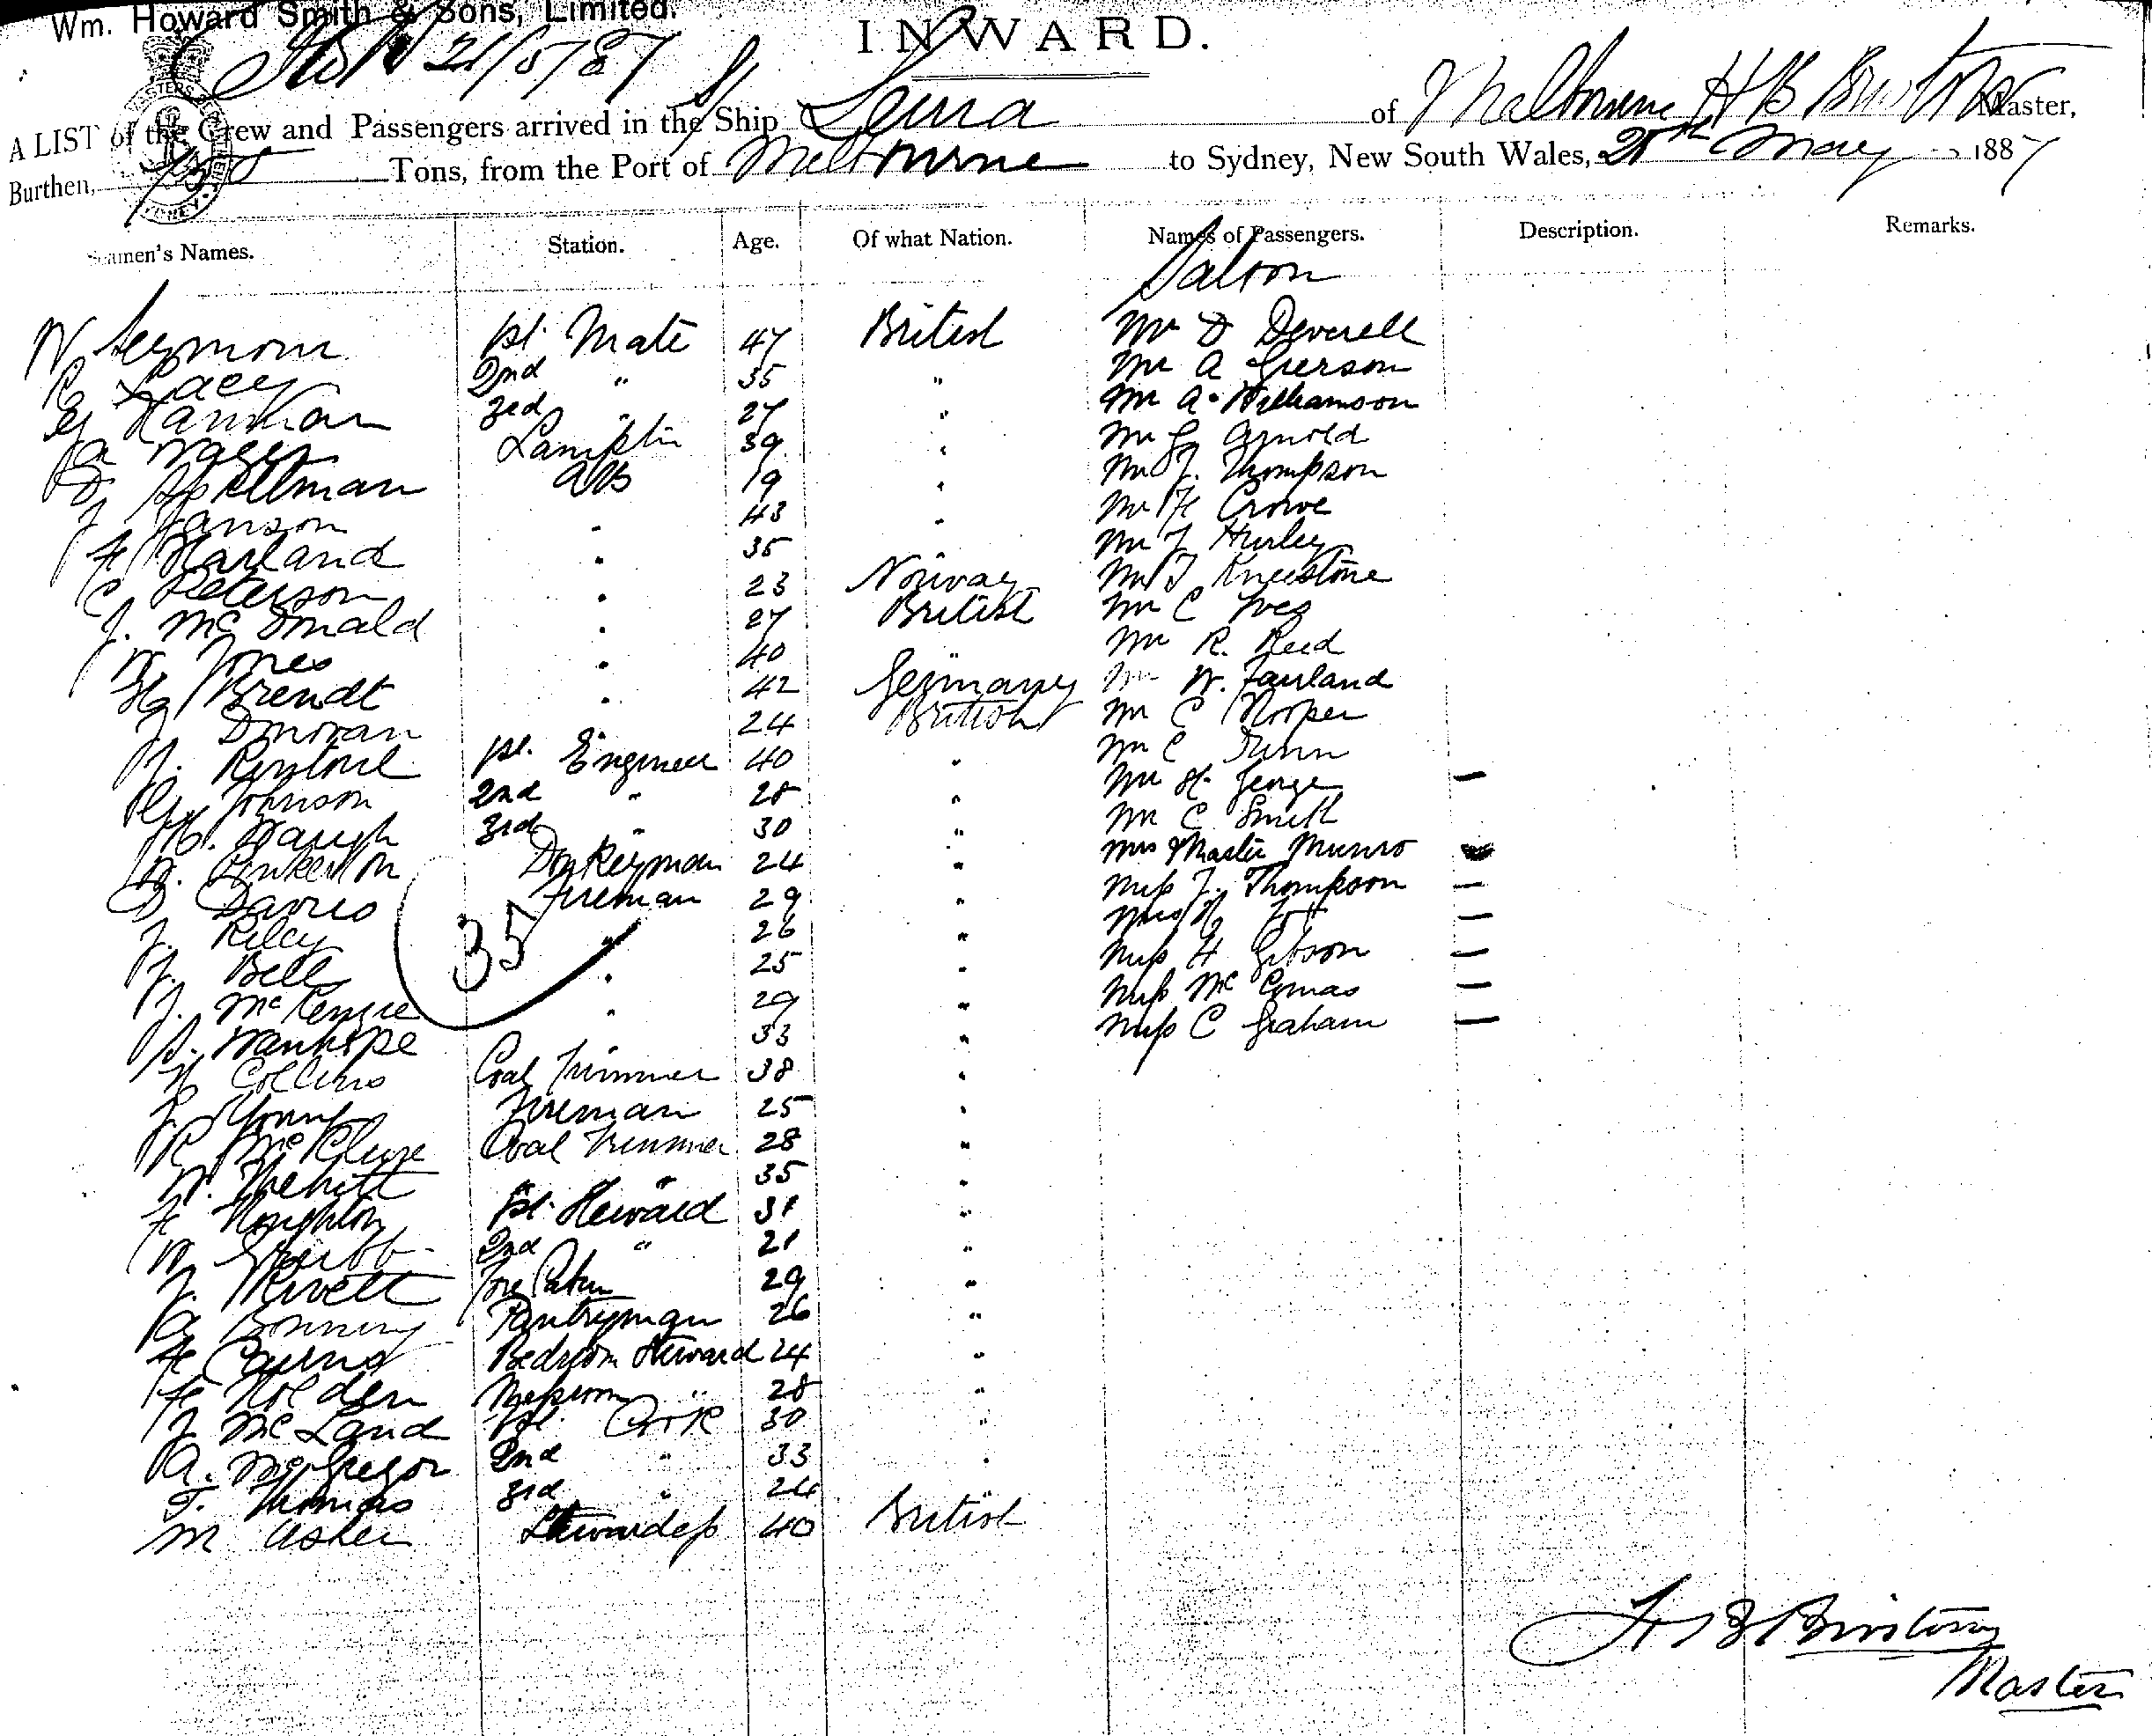 Wm. Howard Smith & Sons, Limited.
INWARD.
21/5/87
A LIST of the Crew and Passengers arrived in the Ship Leura of Melbourne H B Master,
Burthen, Tons, from the Port of Melbourne to Sydney, New South Wales, May 1887
Seamen's Names. Station. Age. Of what Nation. Names of Passengers. Description. Remarks.
Saloon
W Seymour 1st Mate 47 British Mr D Deverell
R Lacey 2nd " 35 " Mr A Grierson
3rd " 27 " Mr A. Williamson
Lamptr 39 " Mr G Arnold
D Spellman AB 19 " Mr J. Thompson
J Janson " 43 " Mr H Crowe
H Harland " 35 Mr J Hurley
C Peterson " 23 Norway Mr J Kneestone
J. McDonald " 27 British Mr C Ives
W Jones " 40 " Mr R. Reed
Hy Brendt " 42 Germany Mr W. Fairland
J Donovan " 24 British Mr C Hooper
J. 1st. Engineer 40 " Mr C Dunn
G. Johnson 2nd " 28 " Mr H George —
H. Waugh 3rd " 30 " Mr C Smith
W. Pinkerton Donkeyman 24 " Mrs Master Munro
D Davies Fireman 29 " Miss J. Thompson —
J. Riley " 26 " —
J. Bell " 25 " Miss H Gibson —
J. McKenzie " 29 " Miss McComas —
Wanhope " 33 " Miss C Graham —
35
W Collins Coal Trimmer 38 "
J. Young Fireman 25 "
R McClure Coal Trimmer 28 "
W. " " 35 "
H Houghton 1st. Steward 31 "
W Stubb 2nd " 21 "
J. Rivett Fore Cabin 29 "
A Bonney Pantryman 26 "
H Cairns Bedroom Steward 24 "
H Holden Messroom " 28 "
J McLand 1st. Cook 30 "
A. McGregor 2nd " 33 "
T. Thomas 3rd " 24 "
M Asher Stewardess 40 British
H B
Master